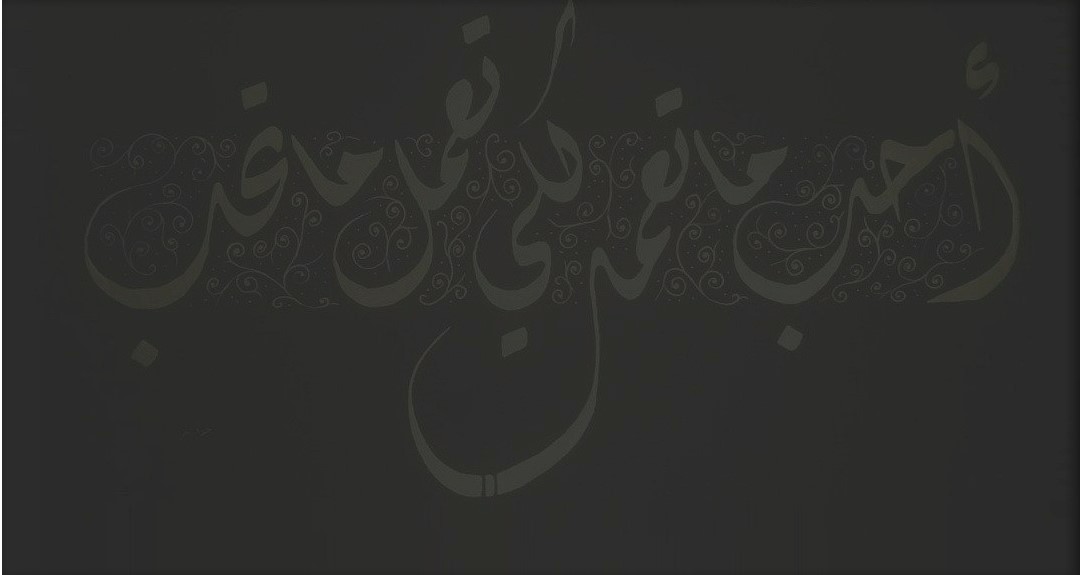 أحب ما تعمل لكي تعمل ما تحب